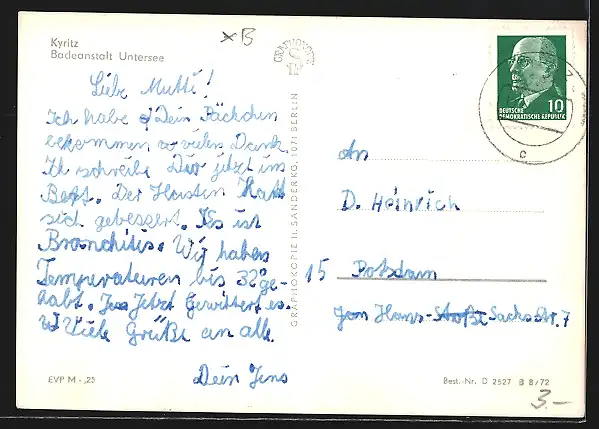 Kyritz
Badeanstalt Untersee
×B
Liebe Mutti!
Ich habe Dein Päckchen
bekommen vielen Dank.
Ich schreibe Dir jetzt im
Bett. Der Husten hatt
sich gebessert. Es ist
Bronchitis. Wir haben
Temperaturen bis 38° ge-
habt. Jetzt Gewittert es.
Viele Grüße an alle.
Dein Jens
EVP M -,25
GRAPHOKOPIE H. SANDER KG, 1071 BERLIN
GRAPHOKOPIE
DEUTSCHE
DEMOKRATISCHE REPUBLIK
10
c
An
D. Heinrich
15 Potsdam
Hans-Sachs Str. 7
Best.-Nr. D 2527 B 8/72
3.-